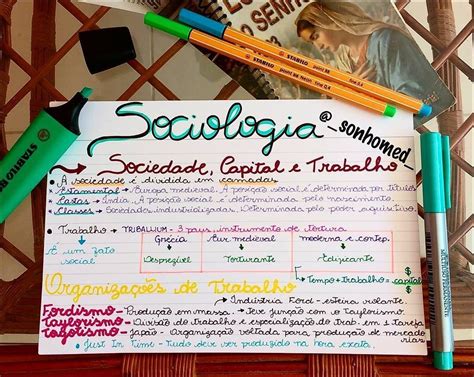 O SENHO
STABILO point 88 fine 0.4
STABILO point 88 Neon fine 0.4
STABILO BO
Sociologia
@_sonhomed_
Sociedade, Capital e Trabalho
• A sociedade é dividida em camadas
• Estamental → Europa medieval. A posição social é determinada por títulos
• Castas → Índia. A posição social é determinada pelo nascimento.
• Classes → Sociedades industrializadas. Determinada pelo poder aquisitivo.
• Trabalho → TRIPALLIUM - 3 paus, instrumento de tortura
É um fato social
Grécia
Eur medieval
moderna e contep.
Desprezível
Torturante
Edificante
Tempo + trabalho = capital
$
$
Organizações de Trabalho
Indústria Ford - esteira volante.
Fordismo → Produção em massa. → Teve junção com o Taylorismo.
Taylorismo → Divisão do trabalho e especialização do trab. em 1 tarefa
Toyotismo → Japão - Organização voltada para produção de mercado
rias
• Just In Time - Tudo deve ser produzido na hora exata.